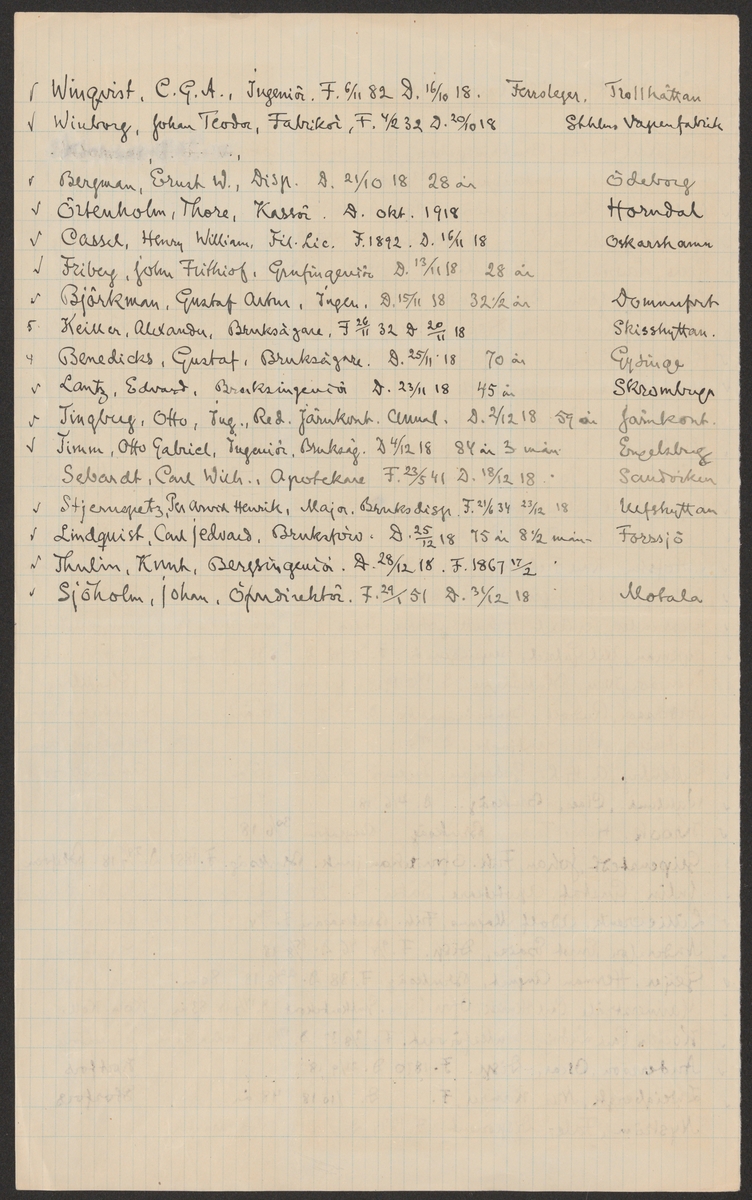 √ Winqvist, C.G.A., Ingeniör. F. 6/11 82 D. 16/10 18. Ferroleger. Trollhättan
√ Winborg, Johan Teodor, Fabrikör, F. 4/2 32 D. 20/10 18 Sthlms Vapenfabrik
√ Bergman, Ernst W., Disp. D. 21/10 18 28 år Ödeborg
√ Örtenholm, Thore, Kassör. D. okt. 1918 Horndal
√ Cassel, Henry William, Fil. Lic. F. 1892. D. 16/11 18 Oskarshamn
√ Friberg, John Frithiof, Grufingeniör D. 13/11 18 28 år
√ Björkman, Gustaf Artur, Ingen. D. 15/11 18 32 1/2 år Domnarfvet
5 Keiller, Alexander, Bruksägare, F 26/11 32 D 20/11 18 Skisshyttan.
4 Benedicks, Gustaf, Bruksägare. D. 25/11 18 70 år Gysinge
√ Lantz, Edvard, Bruksingeniör D. 23/11 18 45 år Skromberga
√ Tingberg, Otto, Ing., Red. Järnkont. Annal. D. 2/12 18 59 år Järnkont.
√ Timm, Otto Gabriel, Ingeniör, Bruksäg. D 4/12 18 84 år 3 mån Engelsberg
Sebardt, Carl Wilh., Apotekare F. 23/5 41 D. 18/12 18. Sandviken
√ Stjernspetz, Per Arvid Henrik, Major, Bruksdisp. F. 21/6 34 23/12 18 Ulfshyttan
√ Lindquist, Carl Jedvard, Bruksförv. D. 25/12 18 75 år 8 1/2 mån Forssjö
√ Thulin, Knut, Bergsingeniör. D. 28/12 18. F. 1867 17/2
√ Sjöholm, Johan, Öfverdirektör. F. 29/1 51 D. 31/12 18 Motala